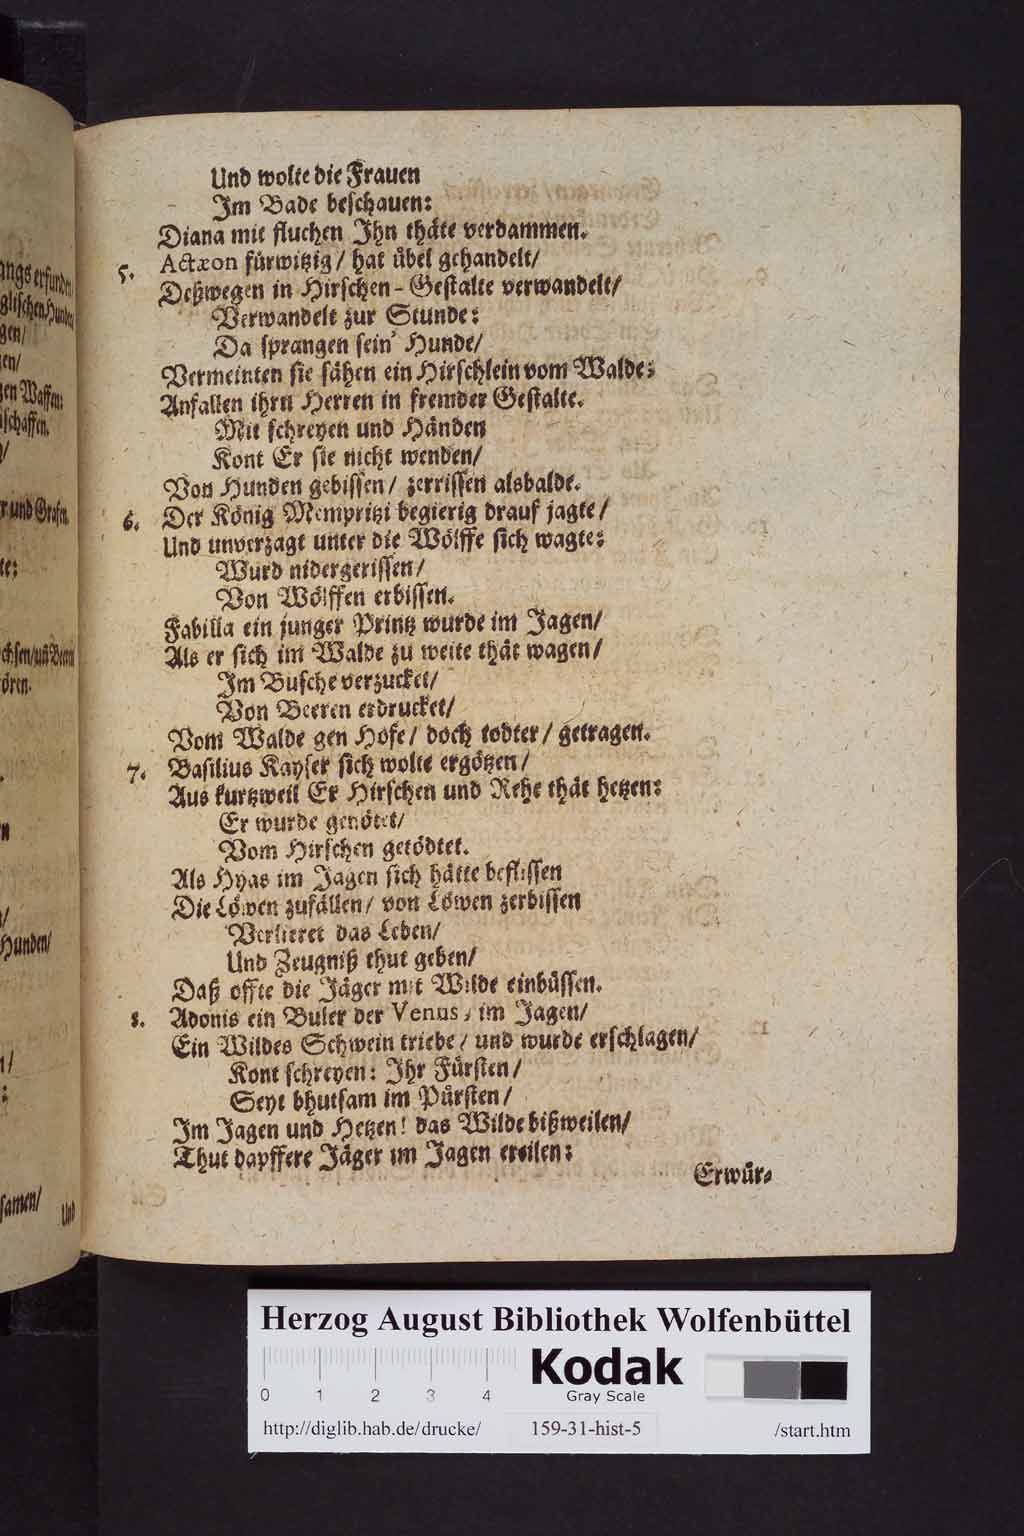 Und wolte die Frauen
Im Bade beschauen:
Diana mit fluchen Ihn thäte verdammen.
5. Actæon fürwitzig / hat übel gehandelt /
Deßwegen in Hirschen-Gestalte verwandelt /
Verwandelt zur Stunde:
Da sprangen sein' Hunde /
Vermeinten sie sähen ein Hirschlein vom Walde:
Anfallen ihrn Herren in fremder Gestalte.
Mit schreyen und Händen
Kont Er sie nicht wenden /
Von Hunden gebissen / zerrissen alsbalde.
6. Der König Mempritzi begierig drauf jagte /
Und unverzagt unter die Wölffe sich wagte:
Wurd nidergerissen /
Von Wölffen erbissen.
Fabilla ein junger Printz wurde im Jagen /
Als er sich im Walde zu weite thät wagen /
Im Busche verzucket /
Von Beeren erdrucket /
Vom Walde gen Hofe / doch todter / getragen.
7. Basilius Kayser sich wolte ergötzen /
Aus kurtzweil Er Hirschen und Rehe thät hetzen:
Er wurde genötet /
Vom Hirschen getödtet.
Als Hyas im Jagen sich hätte beflissen
Die Löwen zufällen / von Löwen zerbissen
Verlieret das Leben /
Und Zeugniß thut geben /
Daß offte die Jäger mit Wilde einbüssen.
8. Adonis ein Buler der Venus, im Jagen /
Ein Wildes Schwein triebe / und wurde erschlagen /
Kont schreyen: Ihr Fürsten /
Seyt bhutsam im Pürsten /
Im Jagen und Hetzen! das Wilde bißweilen /
Thut dapffere Jäger im Jagen ereilen:
Erwür-
angs erfunden
glischen Hunden
gen /
en /
gen Waffen:
schaffen.
r und Grafen.
te:
chsen / uñ Beern
ören.
Hunden /
samen /
Und
Herzog August Bibliothek Wolfenbüttel
0 1 2 3 4
Kodak
Gray Scale
http://diglib.hab.de/drucke/ 159-31-hist-5 /start.htm